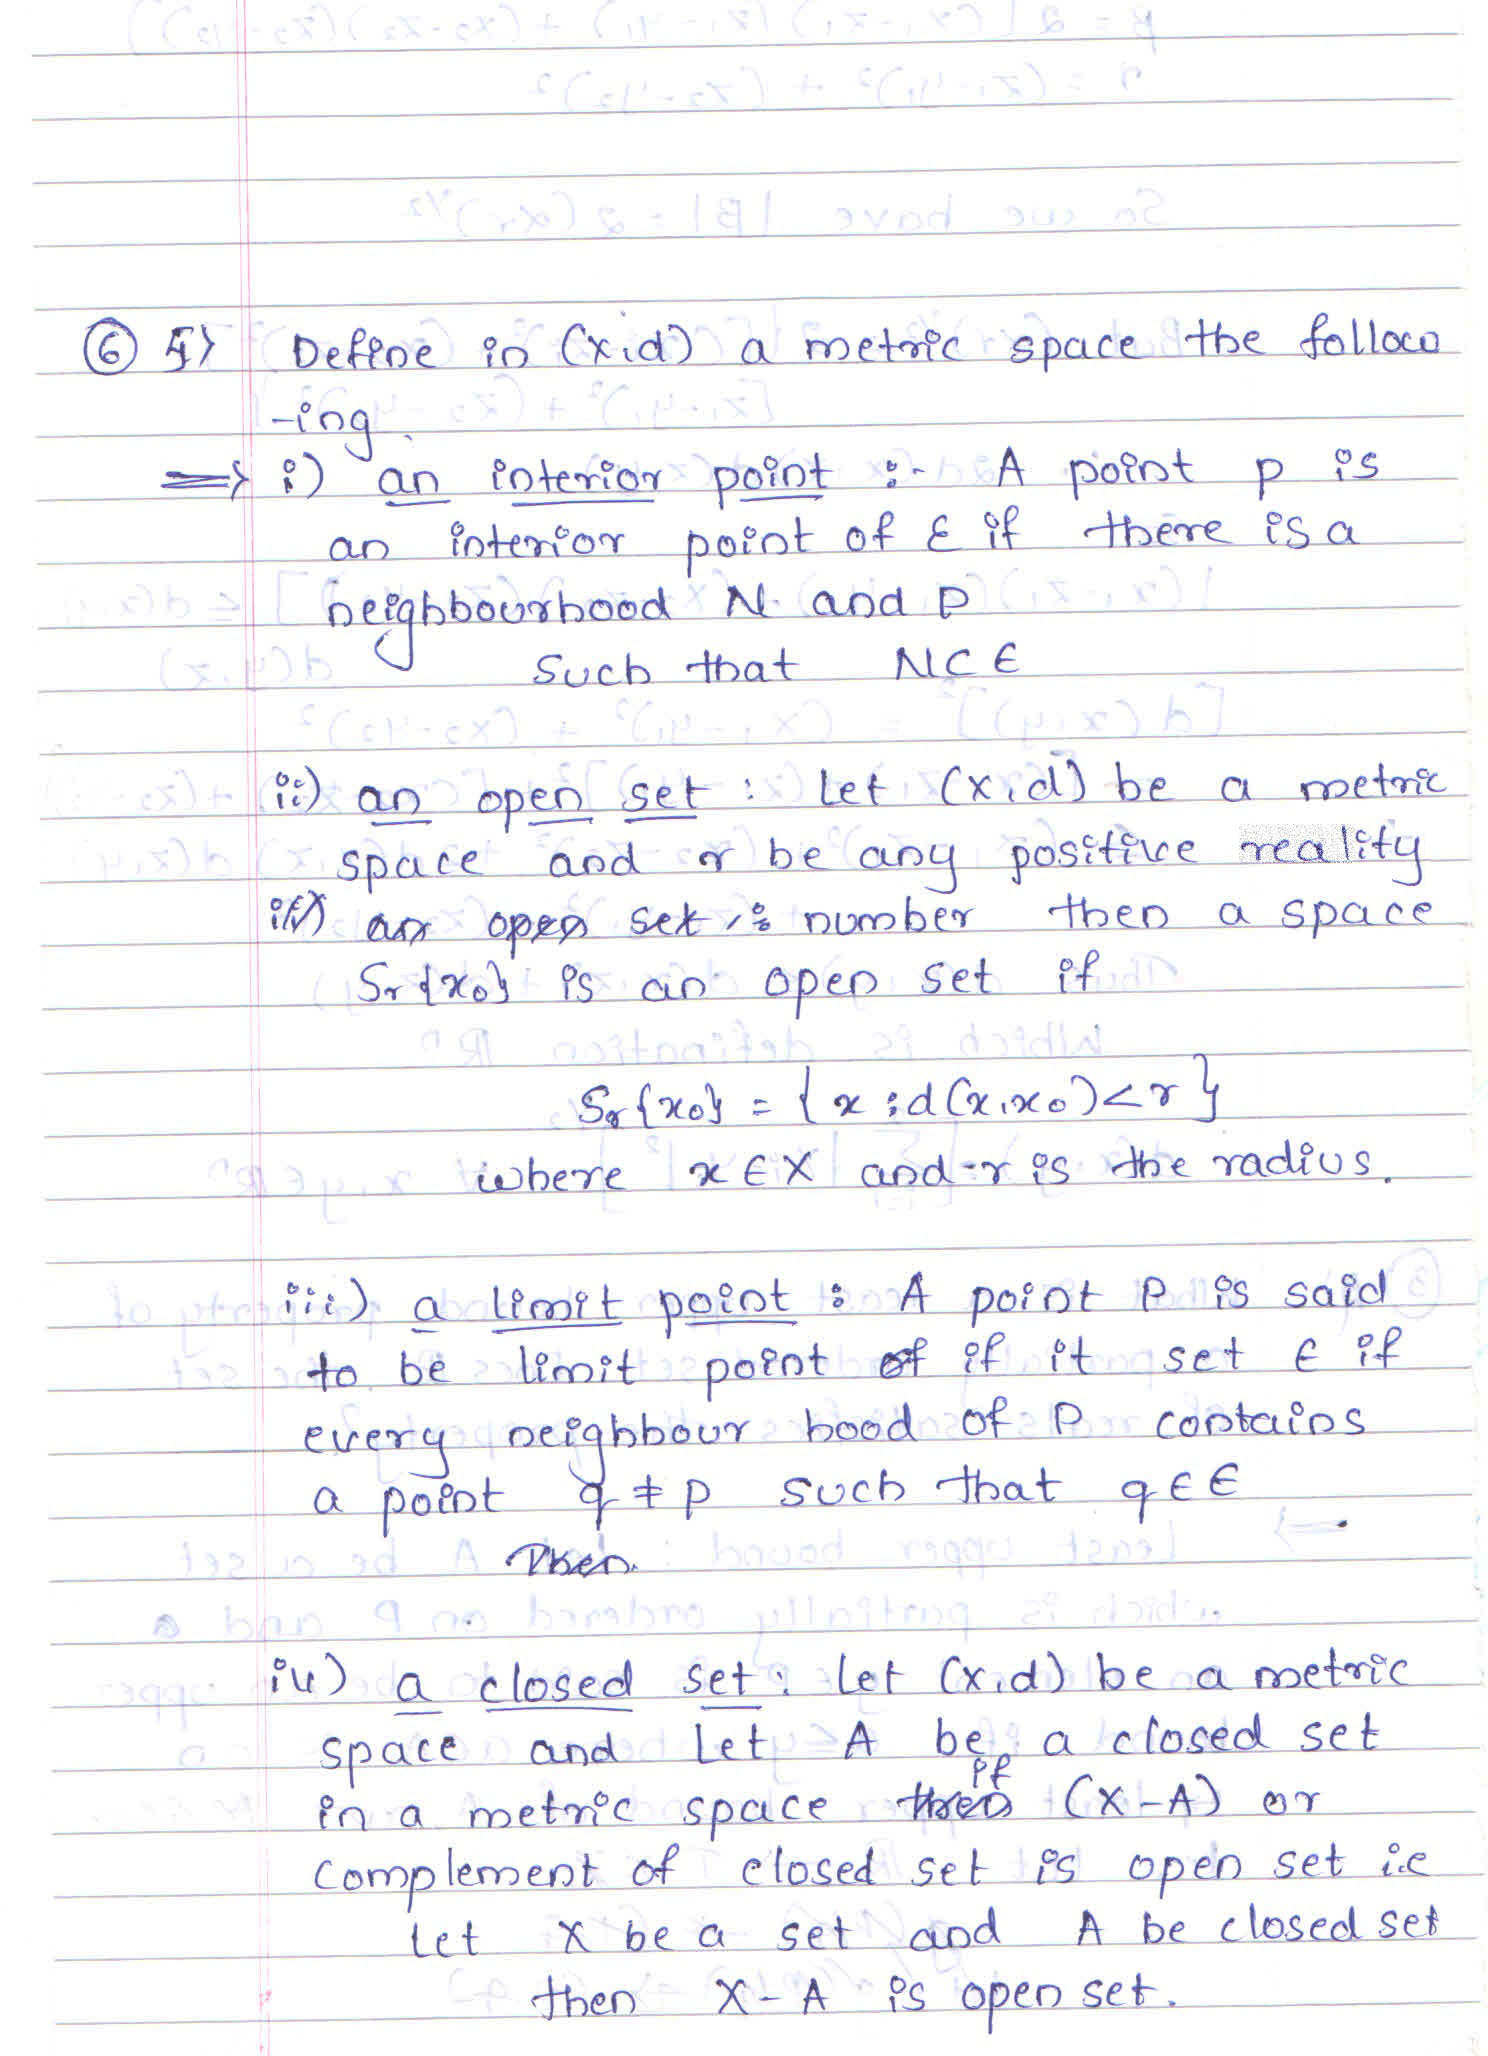 ⑥ 5) Define in (X,d) a metric space the follow
-ing.
⇒ i) an interior point :- A point p is
an interior point of E if there is a
neighbourhood N. and P
such that N⊂E
ii) an open set : Let (X,d) be a metric
space and r be any positive reality
iii) an open set : number then a space
Sr{x0} is an open set if
Sr{x0} = {x : d(x,x0) < r}
where x ∈ X and r is the radius.
iii) a limit point : A point P is said
to be limit point of if it set E if
every neighbour hood of P contains
a point q ≠ p such that q ∈ E
Then.
iv) a closed set : Let (X,d) be a metric
space and Let A be a closed set
if
in a metric space then (X-A) or
complement of closed set is open set i.e
Let X be a set and A be closed set
then X - A is open set.